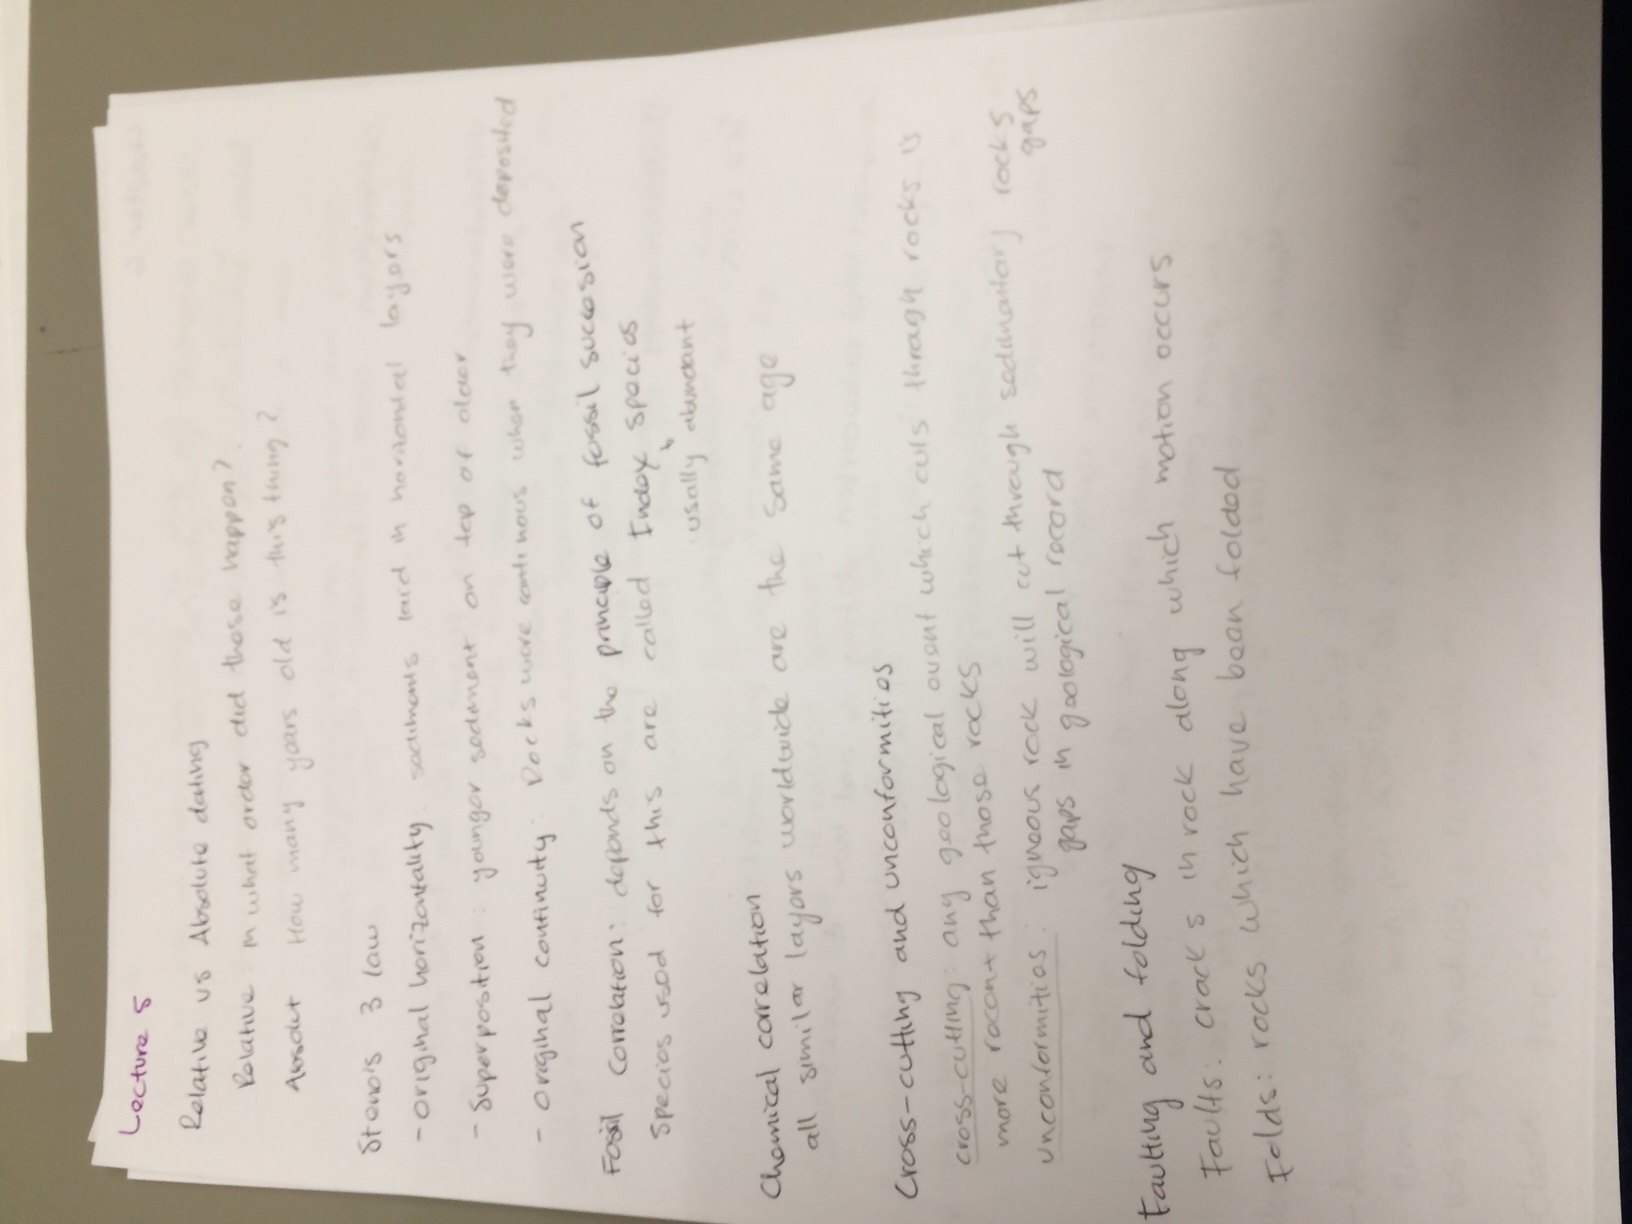 Lecture 5
Relative vs Absolute dating
Relative: in what order did those happen?
Absolut How many years old is this thing?
Steno's 3 law
- original horizontality: sediments laid in horizontal layers
- Superposition: younger sediment on top of older
- original continuity: Rocks were continous when they were deposited
Fossil correlation: depends on the principle of fossil succession
Species used for this are called Index species
usally abundant
Chemical correlation
all similar layers worldwide are the same age
Cross-cutting and unconformities
cross-cutting: any geological event which cuts through rocks is
more recent than those rocks
unconformities: igneous rock will cut through sedimentary rocks
gaps in geological record gaps
Faulting and folding
Faults: cracks in rock along which motion occurs
Folds: rocks which have been folded